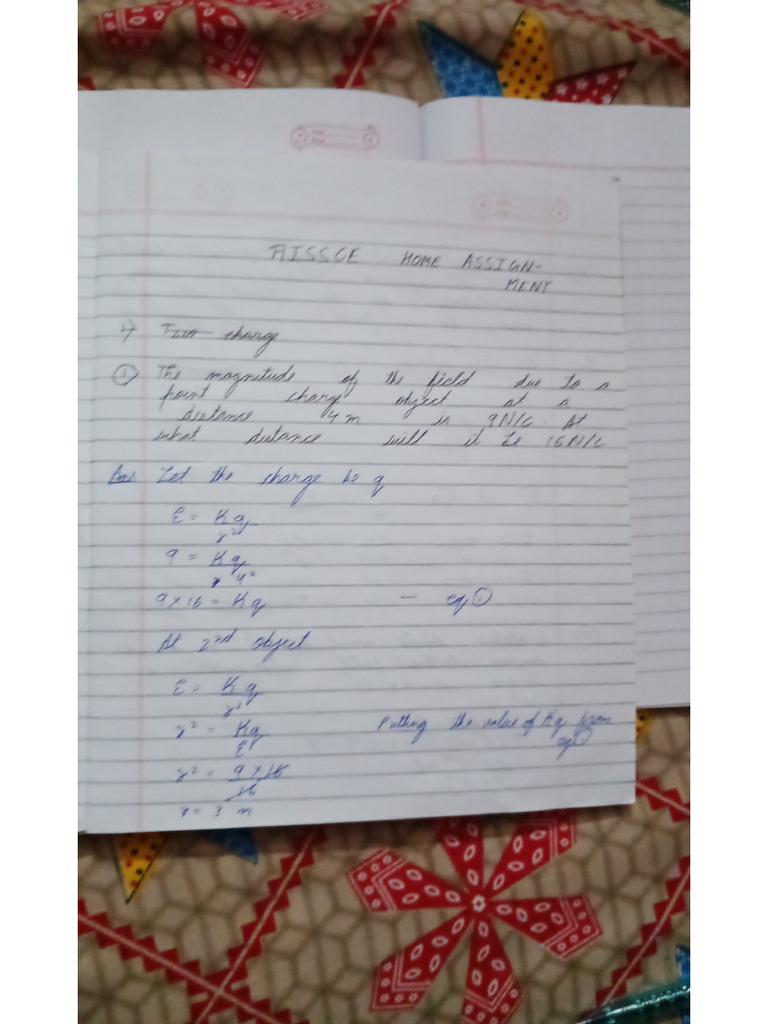 AISSCE HOME ASSIGN-
MENT
1) Two charge
① The magnitude of the field due to a
point charge object at a
distance 4m is 9N/C. At
what distance will it be 16N/C
Ans Let the charge be q
E = Kq
r²
9 = Kq
4²
9×16 = Kq — eq ①
At 2nd object
E = Kq
r²
r² = Kq Putting the value of Kq from
E eq①
r² = 9×16
16
r = 3 m